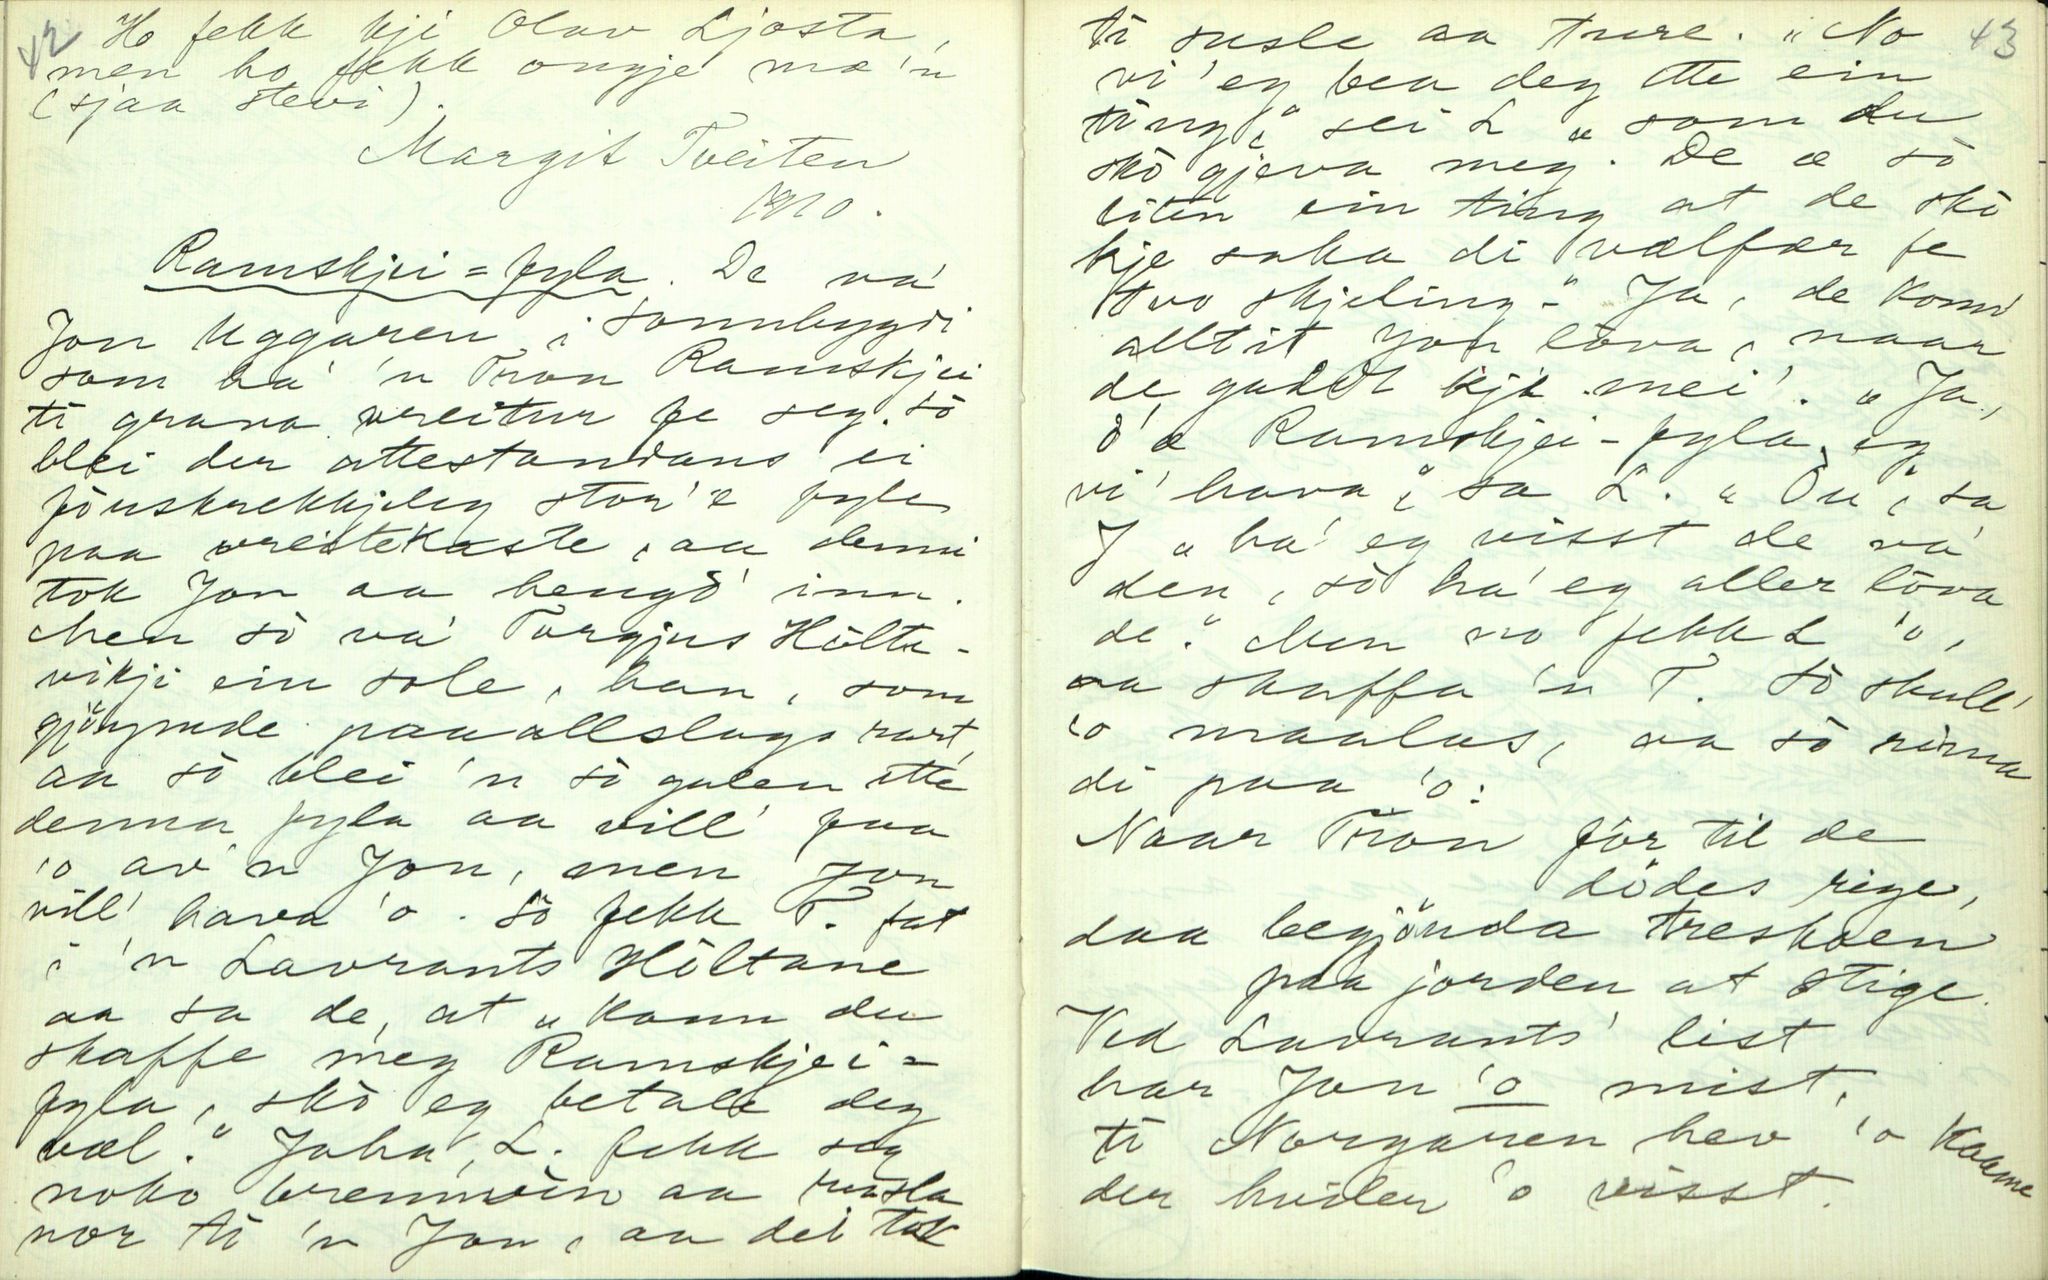 42
Ho fekk kji Olav Ljosta,
men ho fekk ongje mæ 'n
(sjaa stevi).
Margit Tveiten
1910.
Ramskjei=fyla. De va'
Jon Uggaren i sonnbygdi
som ha' 'n Tron Ramskjei
ti grava vreitur fe seg. So
blei der attestandans ei
föuskrekkjeleg stor'e fyle
paa vreitekaste, aa denni
tok Jon aa hengd' inn.
Men so va' Torgjus Holta-
vikji ein sole, han, som
gjöymde paa allslags rart,
aa so blei 'n so galen ette
denna fyla aa vill' faa
'o av 'n Jon, men Jon
vill' hava 'o. So fekk T. fat
i 'n Lavrants Höltane
aa sa de, at „kann du
skaffe meg Ramskjei=
fyla, sko eg betale deg
væl." Joha, L. fekk seg
noko brennvin aa rusla
nor ti 'n Jon, aa dei tok
43
ti susle aa ture. „No
vi' eg bea deg ette ein
ting," sei L „som du
sko gjeva meg". De æ so
liten ein ting at de sko
kje saka di vælfær fe
tvo skjeling." Ja, de konn'
alltit Jon lova, naar
de galdt kje mei'. „Ja,
d'æ Ramskjei-fyla eg
vi' hava," sa L. „Öu", sa
J „ha' eg visst de va'
den, so ha' eg aller lova
de." Men no fekk L 'o,
aa skaffa 'n T. So skull'
'o maalas, aa so rima
di paa 'o:
Naar Tron for til de
dödes rige,
daa begjönda treskoen
paa jorden at stige.
Ved Lavrants' list
har Jon 'o mist,
ti Norgaren hev 'o kaame
der huiler 'o visst.